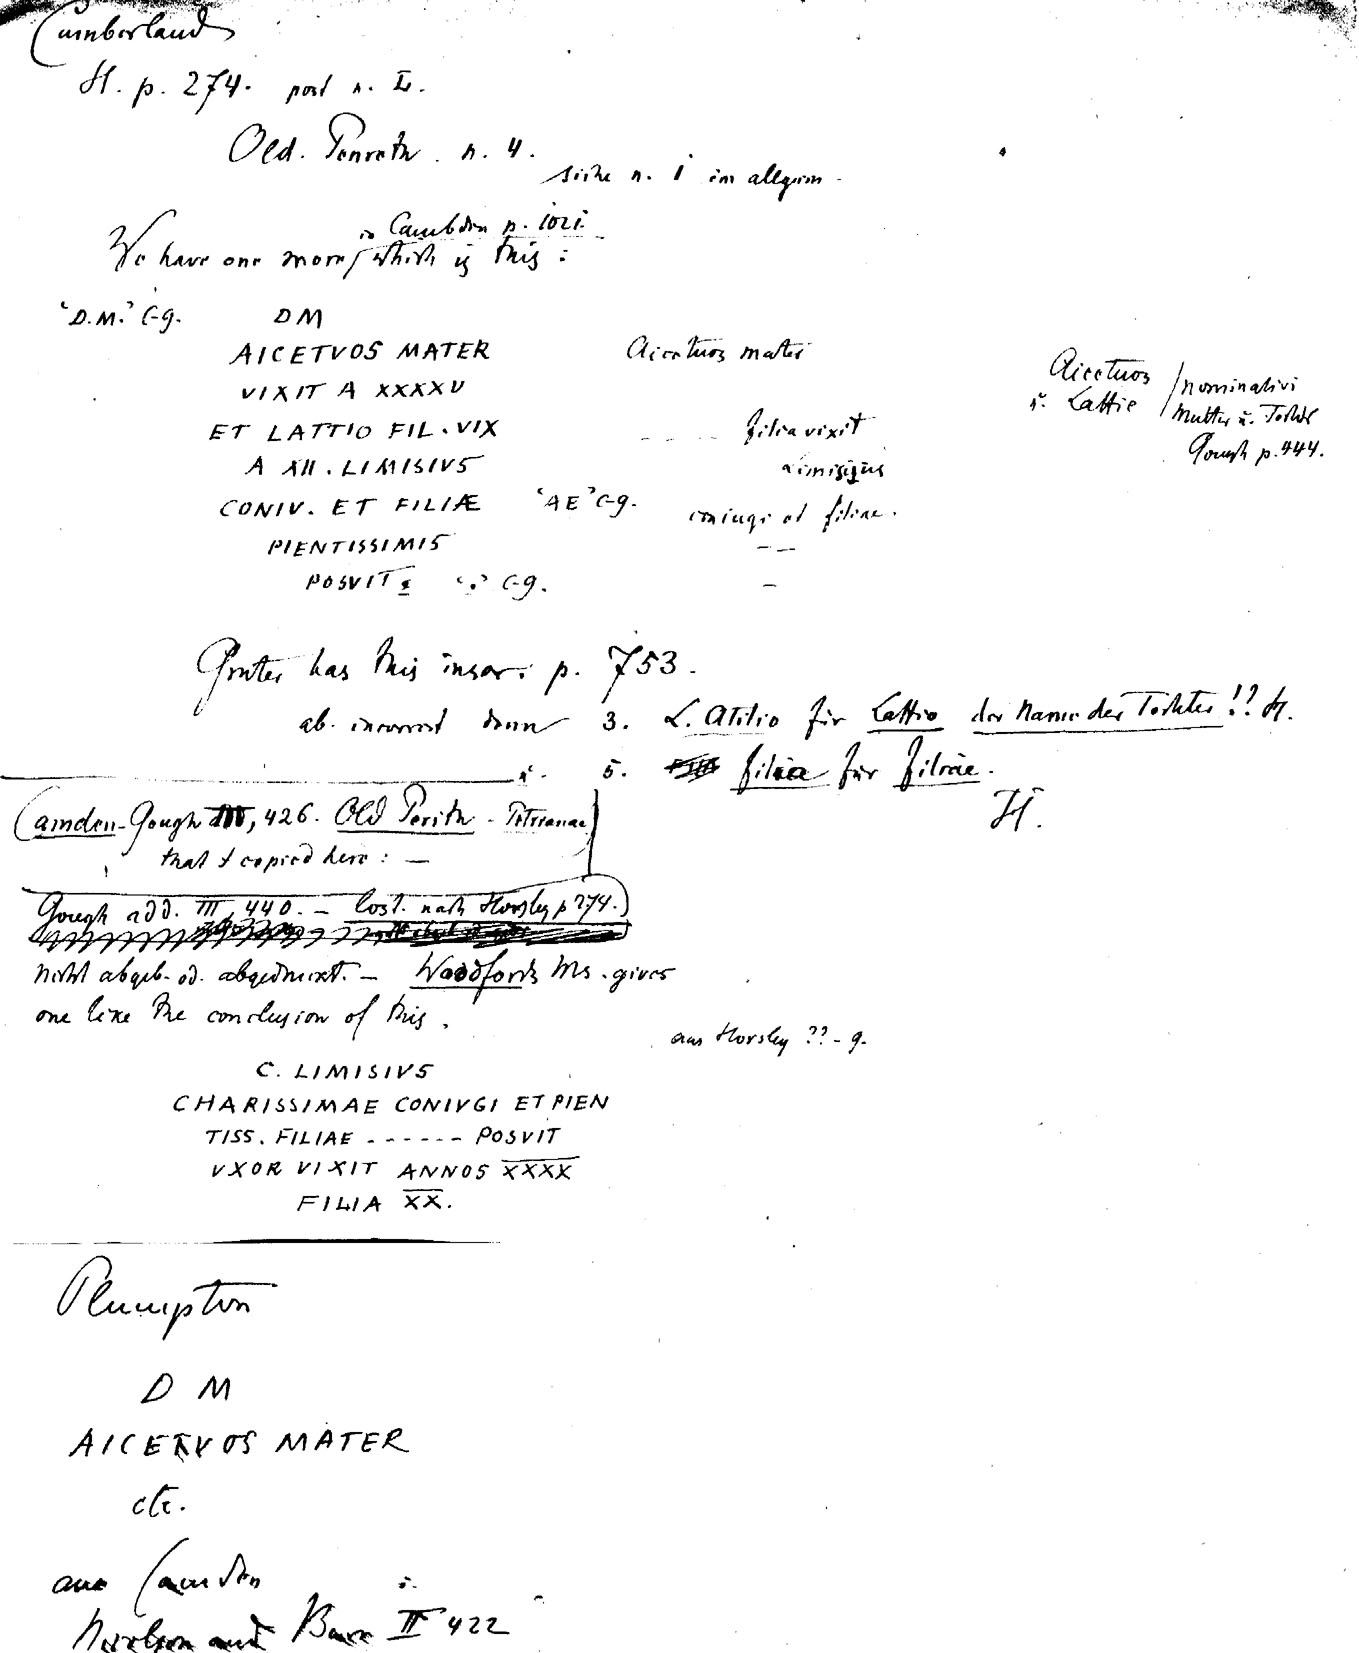 Cumberland
H. p. 274. post n. L.
Old. Penreth. n. 4.
siehe n. 1 im allgem.
in Cambden p. 1021.
We have one more, which is this:
"D.M." C-g. DM
AICETVOS MATER Aicetuos mater
VIXIT A XXXXV
ET LATTIO FIL. VIX - - - - filia vixit
A XII. LIMISIVS Limisius
CONIV. ET FILIÆ "AE" C-g. coniugi et filiae.
PIENTISSIMIS - -
POSVIT. "." C-g. -
Aicetuos
u. Lattio
nominativi
Mutter u. Tochter
Gough p. 444.
Gruter has this inscr. p. 753.
ab. incorrect denn 3. L. Atilio für Lattio der Name der Tochter!! H.
u. 5. filia für filiae.
H.
Camden-Gough III, 426. Old Perith - Petrianae
that I copied here: -
Gough add. III, 440. - lost. nach Horsley p 274.
nicht abgeb. od. abgedruckt. - Woodfords Ms. gives
one like the conclusion of this.
aus Horsley ?? - g.
C. LIMISIVS
CHARISSIMAE CONIVGI ET PIEN
TISS. FILIAE - - - - - - POSVIT
VXOR VIXIT ANNOS XXXX
FILIA XX.
Plumpton
D M
AICETVOS MATER
etc.
aus Camden
and Burn II 422